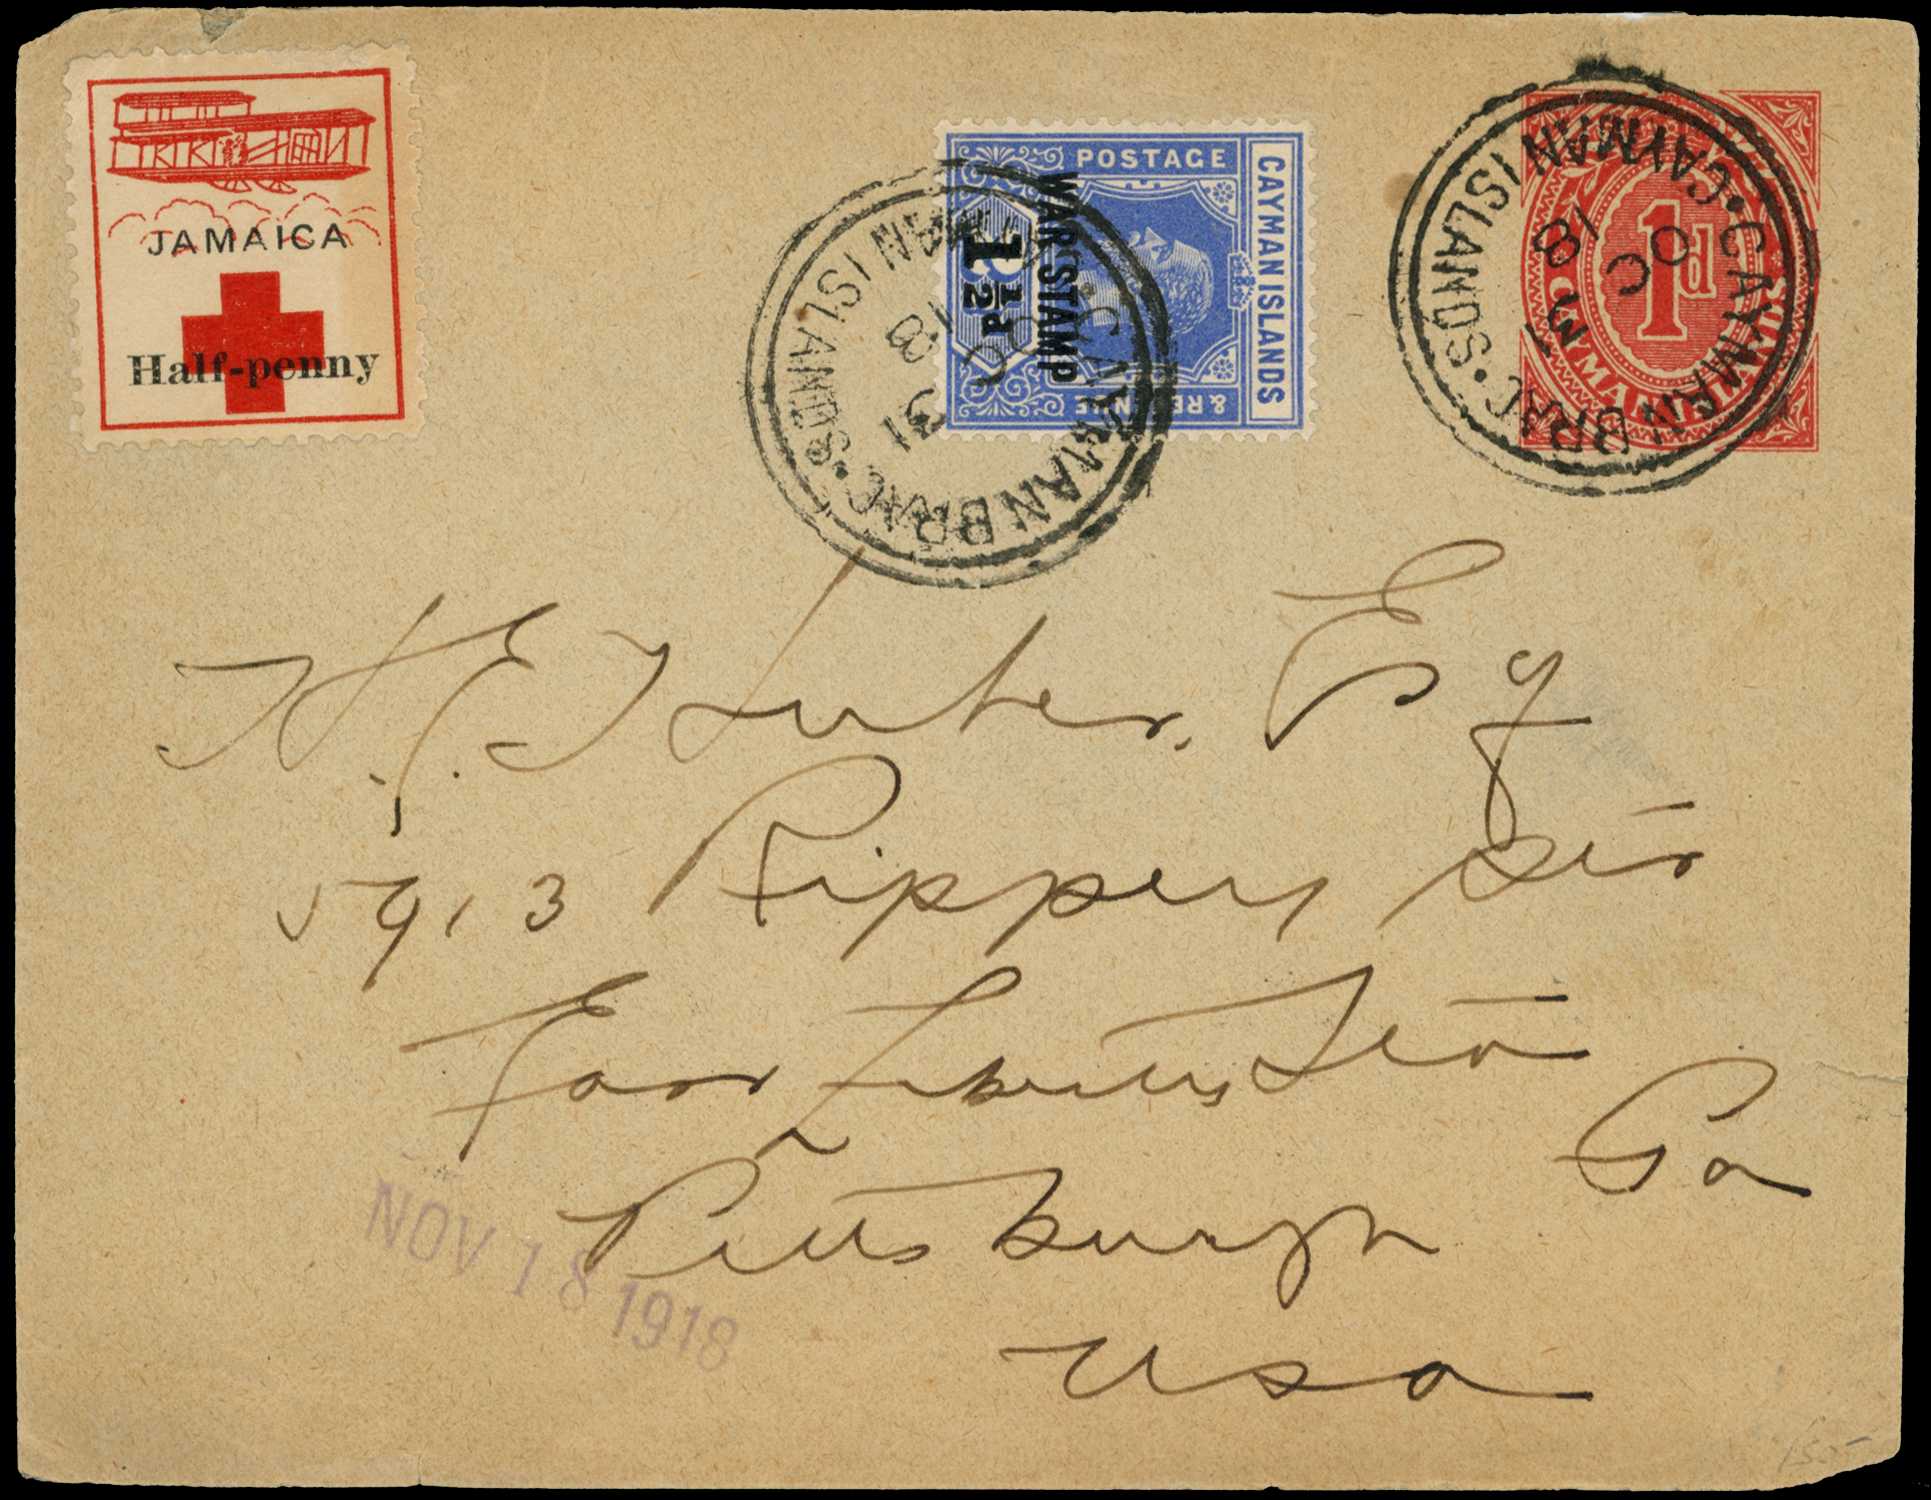 JAMAICA
Half-penny
CAYMAN ISLANDS
POSTAGE
& REVENUE
WAR STAMP
1½d
1d
CAYMAN BRAC • CAYMAN ISLANDS •
31
OC
18
CAYMAN BRAC • CAYMAN ISLANDS •
31
OC
18
H. E. Huber, Esq
5913 Rippey St
East Liberty Sta
Pittsburgh Pa
USA
NOV 18 1918